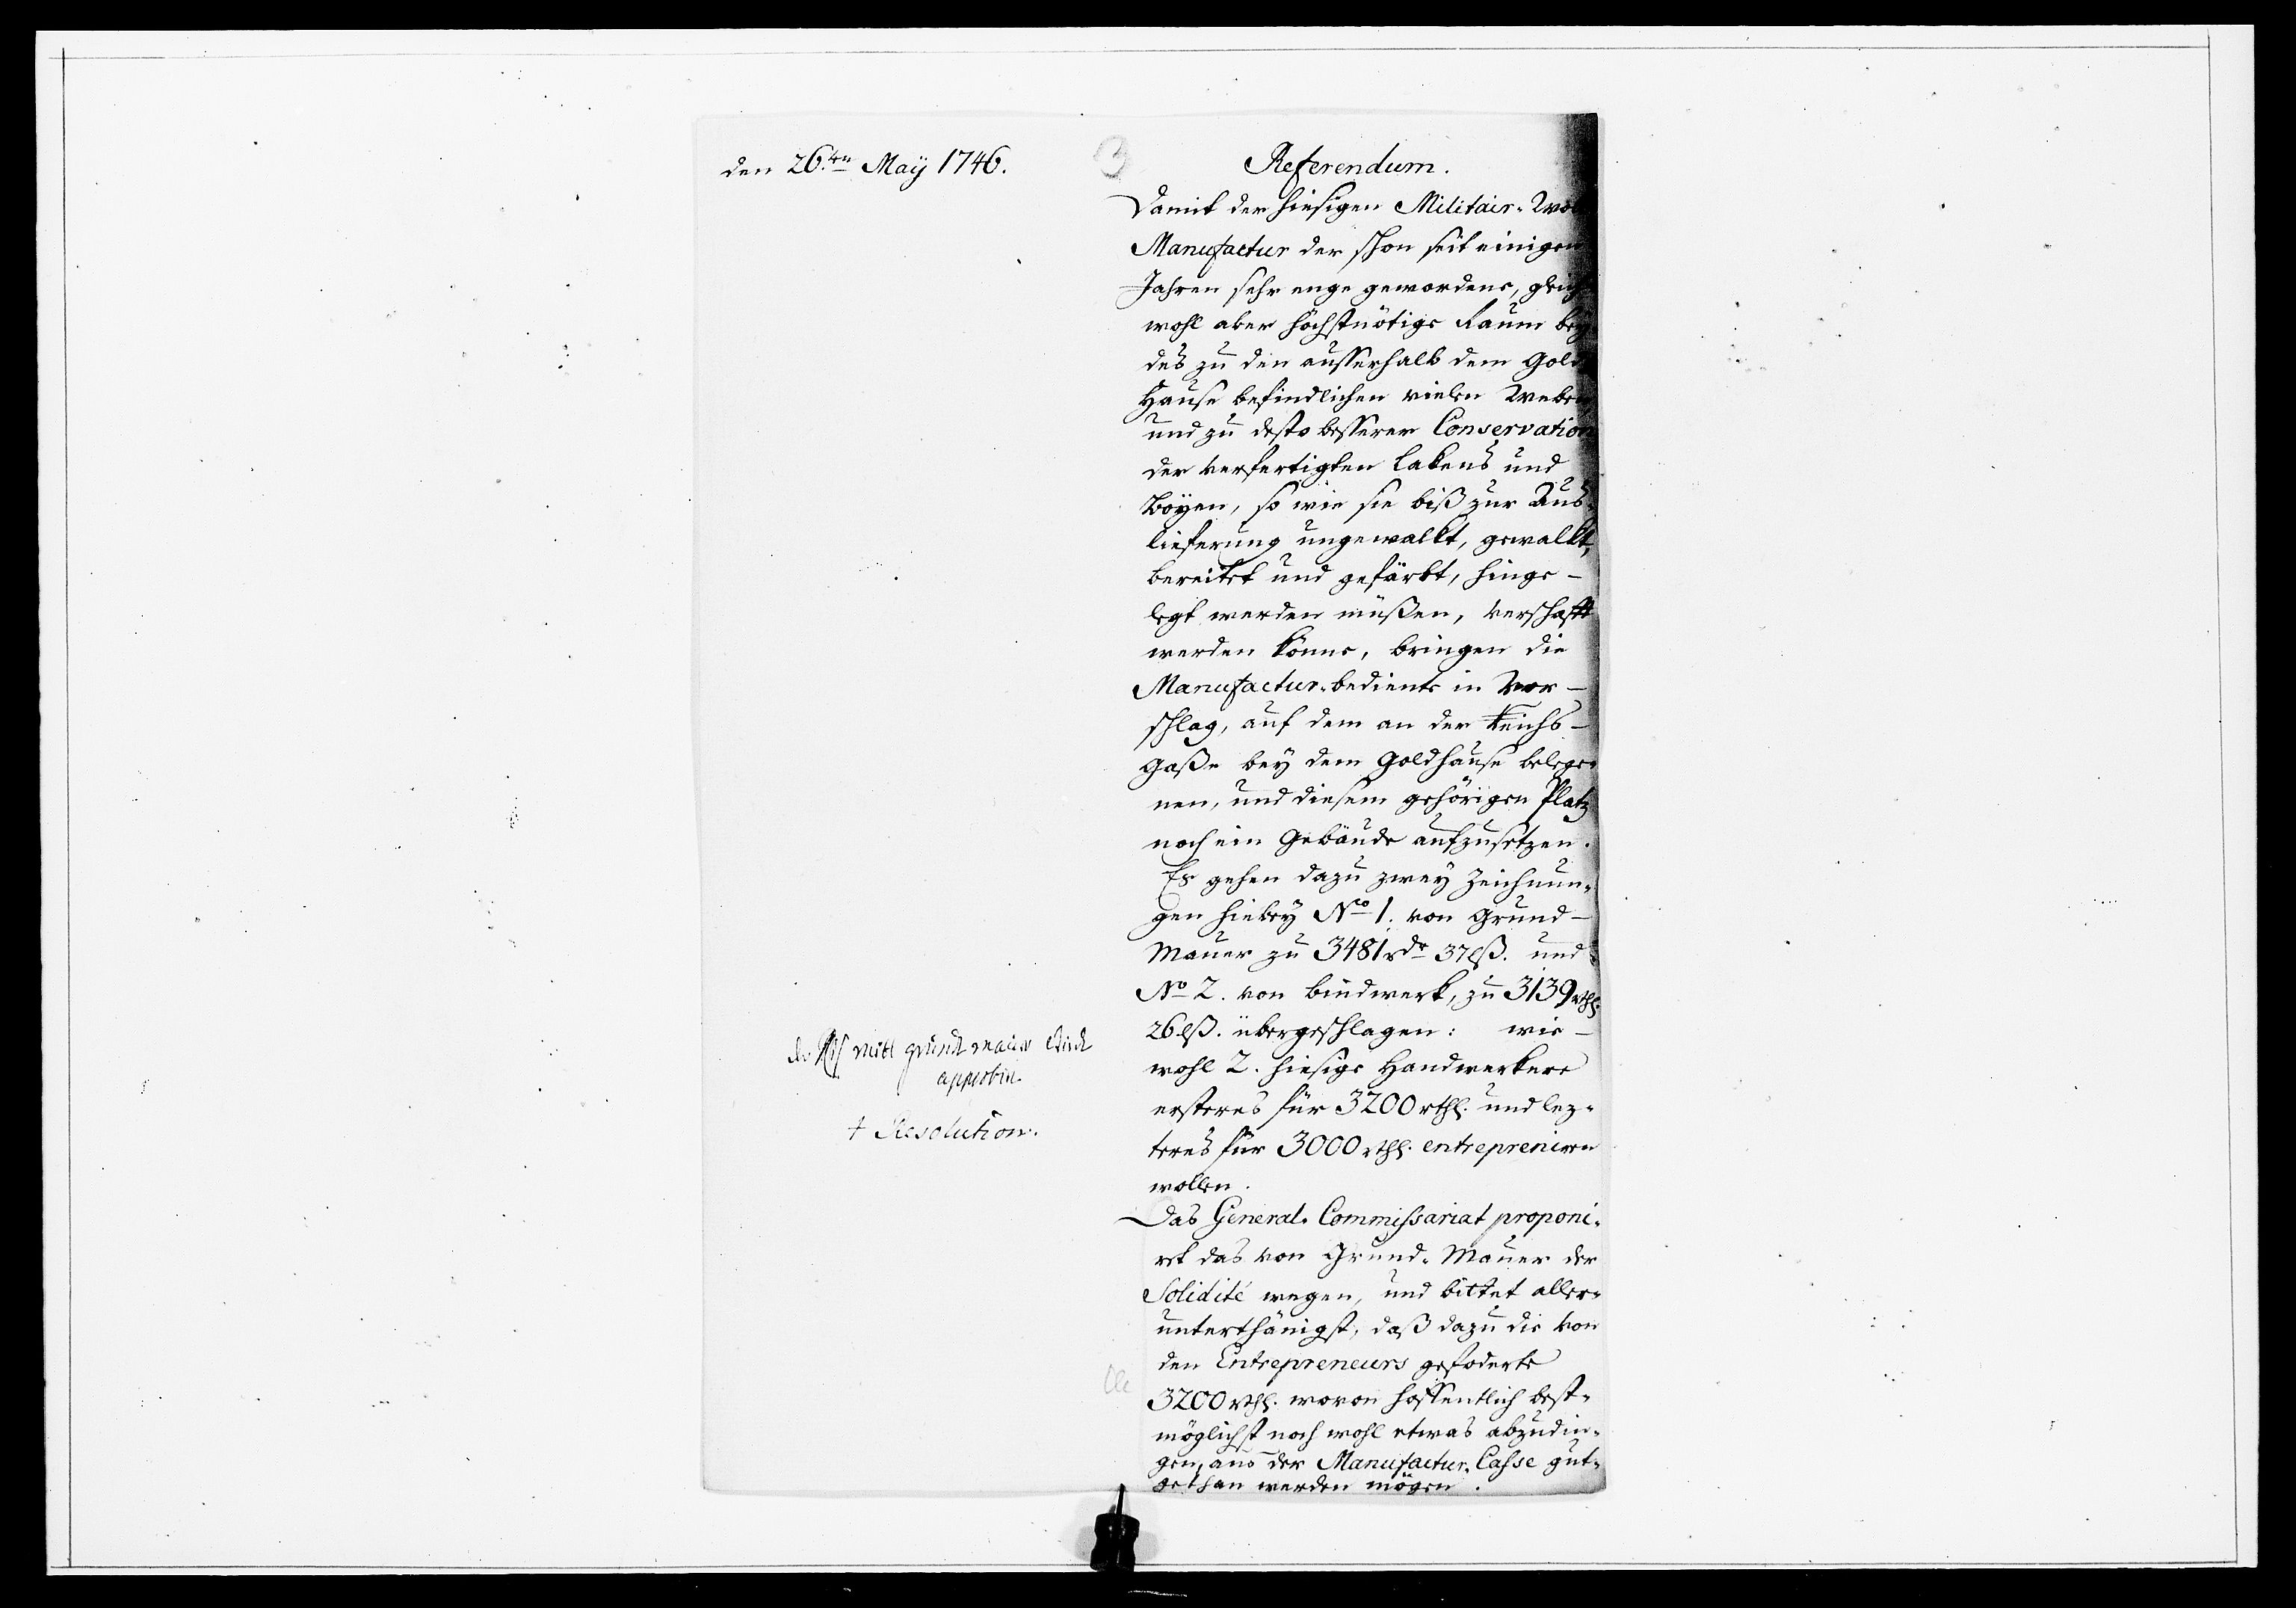 den 26.ten Maÿ 1746.
3
Referendum.
Damit der hiesigen Militair-
Manufactur der schon seit einigen
Jahren sehr enge gewordene, gleich
wohl aber höchstnötige Raum bey
des zu den ausserhalb dem Gold
Hause befindlichen vielen Webern
und zu desto besserer Conservation
der verfertigten Lakens und
Boyen, so wie sie biß zur Aus-
lieferung ungewalkt, gewalkt,
bereitet und gefärbt, hinge-
legt werden müßen, verschafft
werden könne, bringen die
Manufactur-bediente in Vor-
schlag, auf dem an der Teichs-
Gaße bey dem Goldhause belege-
nen, und diesem gehörigen Platz
noch ein Gebäude aufzusetzen.
Es gehen dazu zwey Zeichnun-
gen hiebey No 1. von Grund-
Mauer zu 3481 rdr 37 lß. und
No 2. von bindwerk, zu 3139 rthl.
26 lß. übergeschlagen: wie-
wohl 2. hiesige Handwerkere
ersteres für 3200 rthl. und lez-
teres für 3000 rthl. entrepreniren
wollen.
Das General-Commissariat proponi-
ret das von Grund-Mauer der
Solidité wegen, und bittet aller-
unterthänigst, daß dazu die von
den Entrepreneurs gefoderte
3200 rthl. wovon hoffentlich best-
möglichst noch wohl etwas abzudin-
gen, aus der Manufactur-Casse gut-
gethan werden mögen.
mitt grund mauer
approbir.
† Resolution.